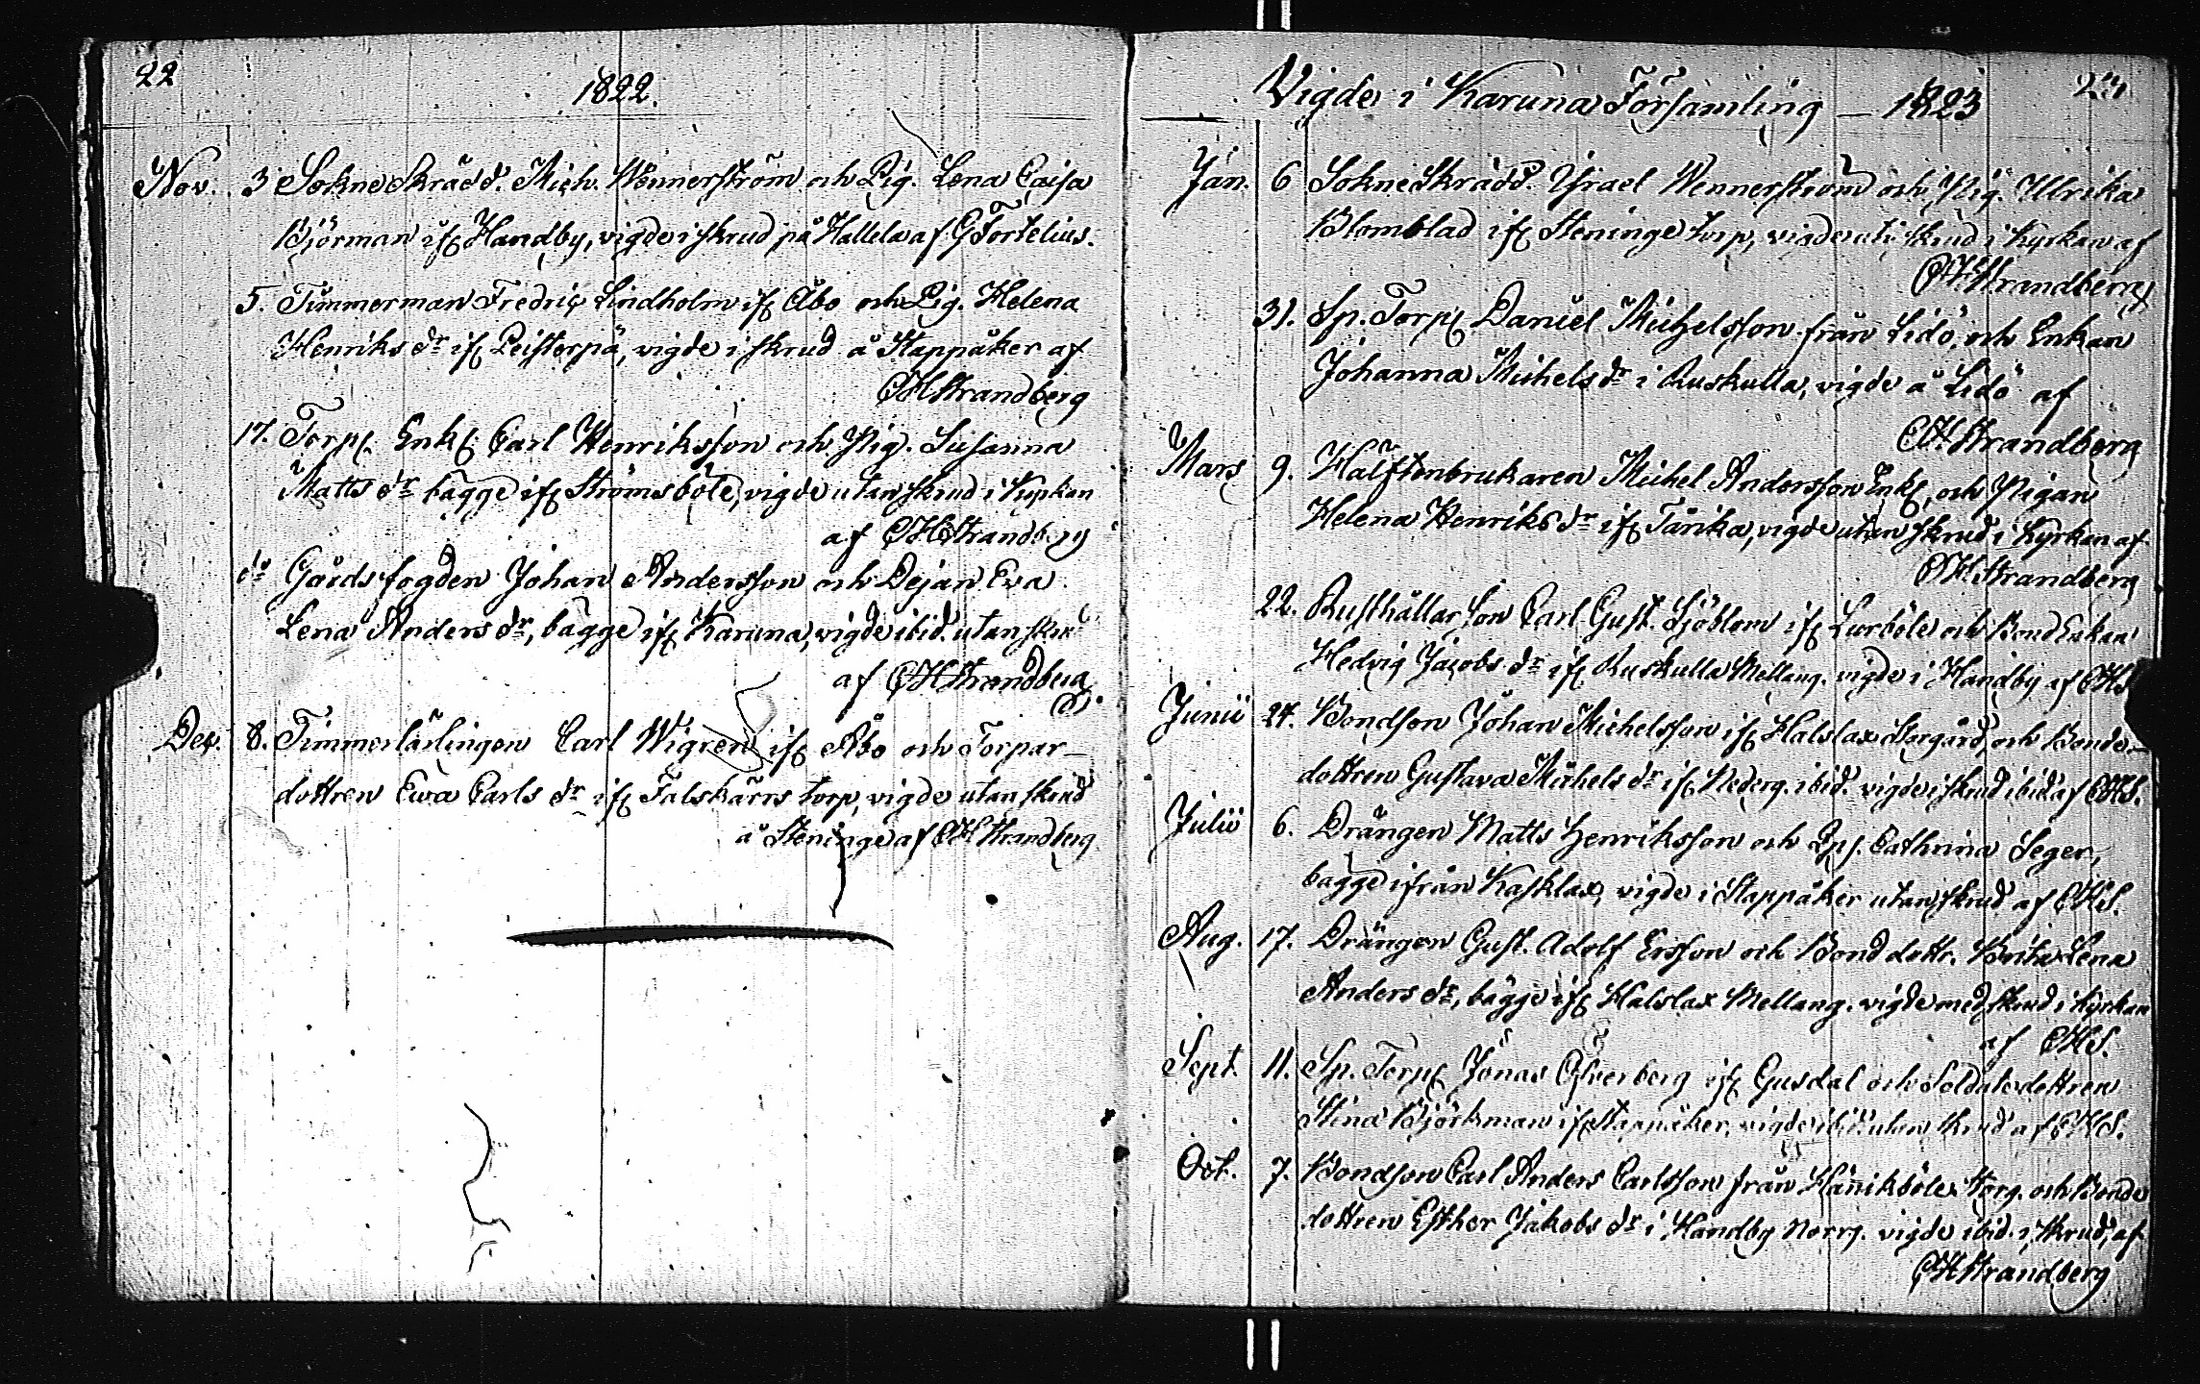 22
1822.
Nov. 3 Sokne Skrädd. Mich. Wennerström och Pig. Lena Caisa
Björman ifr Handby, vigde i skrud på Hallela af G Fortelius.
5. Timmerman Fredric Lindholm ifr Åbo och Pig. Helena
Henriks dr ifr Peistorpä, vigde i skrud å Stappåker af
CHStrandberg
17. Torp. Enkl. Carl Henriksson och Pig. Susanna
Matts dr bägge ifr Strömsböle, vigde utan skrud i Kyrkan
af CHStrandberg
do Gårdsfogden Johan Andersson och Dejan Eva
Lena Anders dr, bägge ifr Karuna, vigde ibid. utan skrud
af CHStrandberg
Dec. 8. Timmerlärlingen Carl Wigren ifr Åbo och Torpar-
dottren Ewa Carls dr ifr Falskärrs torp, vigde utan skrud
å Steninge af CHStrandberg
Vigde i Karuna Församling - 1823
23
Jan. 6 Sokne Skrädd. Israel Wennerström och Pig. Ulrika
Blomblad ifr Steninge torp, vigde uti skrud i Kyrkan af
CHStrandberg
31. Sp. Torp. Daniel Michelsson från Lidö, och Enkan
Johanna Michels dr i Ruskulla, vigde å Lidö af
CHStrandberg
Mars 9. Hälftenbrukaren Michel Andersson Enkl, och Pigan
Helena Henriks dr ifr Tärika, vigde utan skrud i Kyrkan af
CHStrandberg
22. Rusthållar Son Carl Gust. Sjöblom ifr Lurböle och Bond Enkan
Hedvig Jacobs dr ifr Ruskulla Mellang. vigde i Handby af CHS
Junii 24. Bondson Johan Michelsson ifr Halslax Storgård, och Bonde-
dottren Gustava Michels dr ifr Nederg. ibid. vigde i skrud ibid af CHS.
Julii 6. Drängen Matts Henriksson och Cathrina Seger,
bägge ifrån Kasklax, vigde i Stappåker utan skrud af CHS.
Aug. 17. Drängen Gust. Adolf Ersson och Bond dottr. Brita Lena
Anders dr, bägge ifr Halslax Mellang. vigde med skrud i Kyrkan
af CHS.
Sept. 11. Sp. Torp. Jonas Ösverberg ifr Gusdal och Soldatedottren
Stina Björkman ifr Stappåker, vigde ibid. utan skrud af CHS.
Oct. 7. Bondson Carl Anders Carlsson från Hänikböle Storg. och Bonde
dottren Esther Jakobs dr i Handby Norrg. vigde ibid. i skrud, af
CHStrandberg